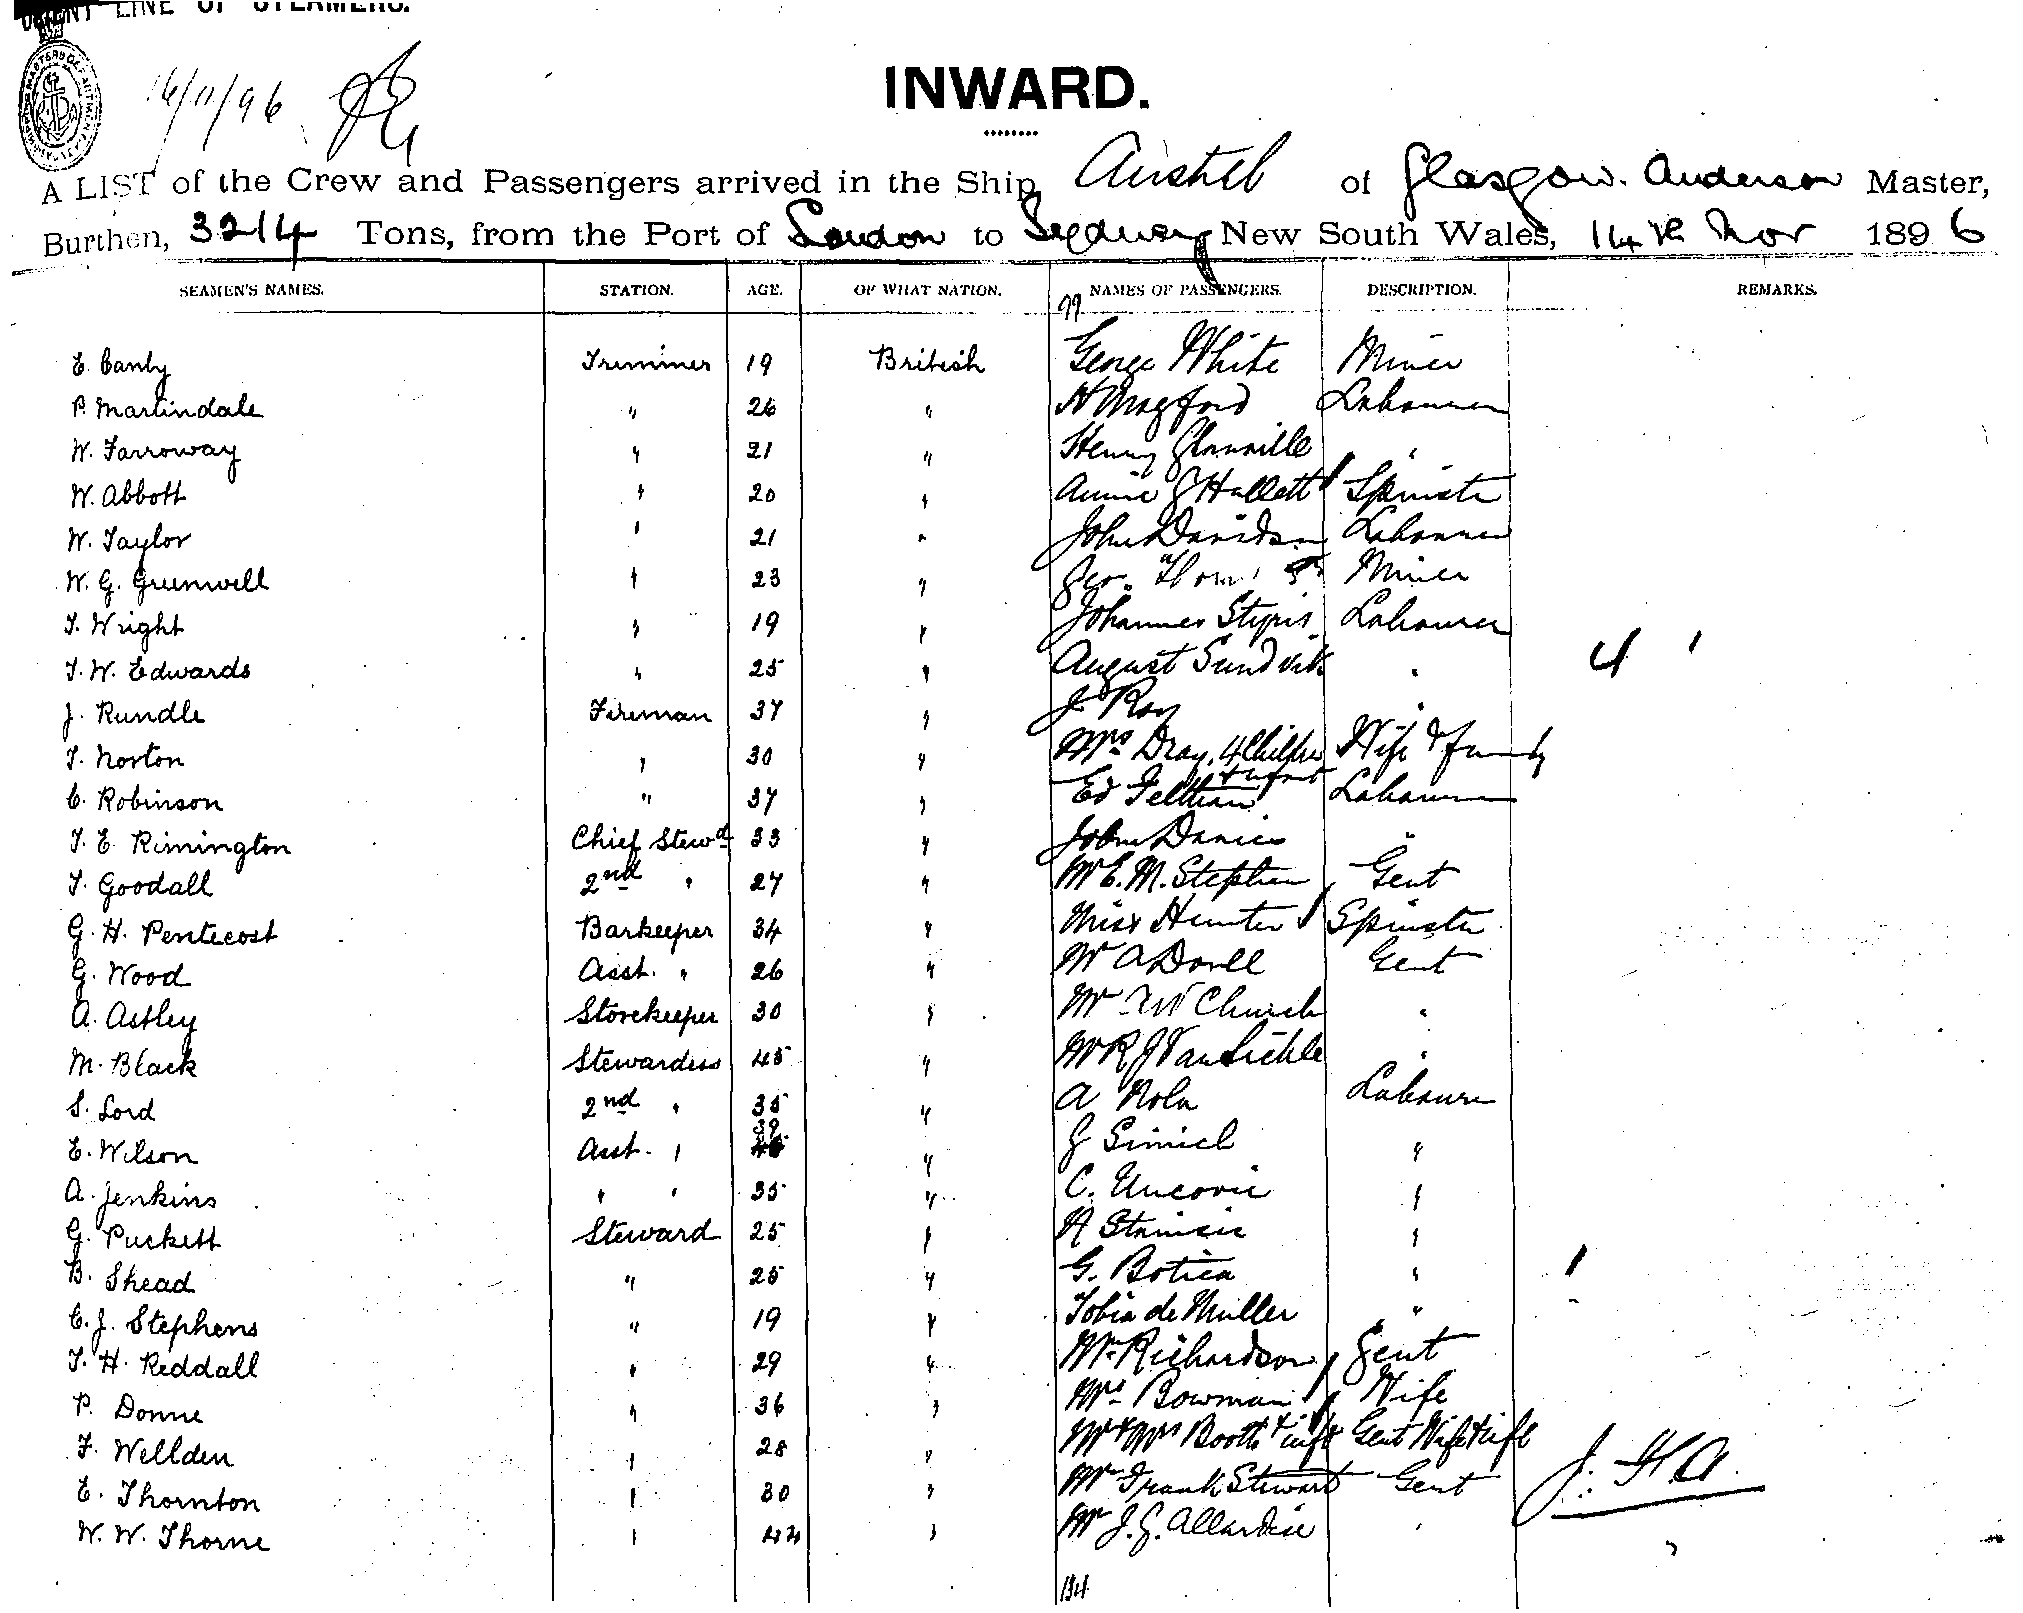 ORIENT LINE OF STEAMERS.
16/11/96
INWARD.
A LIST of the Crew and Passengers arrived in the Ship Austral of Glasgow. Anderson Master,
Burthen, 3214 Tons, from the Port of London to Sydney New South Wales, 14th Nov 1896
SEAMEN'S NAMES. STATION. AGE. OF WHAT NATION. NAMES OF PASSENGERS. DESCRIPTION. REMARKS.
99
E. Canly Trimmer 19 British George White Miner
P. Martindale " 26 " H Labourer
W. Farroway " 21 " Henry Glanville "
W. Abbott " 20 " Annie J Hallett Spinster
W. Taylor " 21 " John Davidson Labourer
W. G. Grunwell " 23 " Geo. Miner
T. Wright " 19 " Johannes Labourer
T. W. Edwards " 25 " August Sundvik " 4 1
J. Rundle Fireman 37 " J Roy "
T. Norton " 30 " Mrs Dray, 4 Children & infant Wife & family
C. Robinson " 37 " Ed Feltham Labourer
T. E. Rimington Chief Stewd 33 " John Davies "
T. Goodall 2nd " 27 " Mr E. M. Stephen Gent
G. H. Pentecost Barkeeper 34 " Miss Hunter Spinster
G. Wood Asst. " 26 " Mr A Dovell Gent
A. Astley Storekeeper 30 " Mr W Church "
M. Black Stewardess 45 " Mr R J Van Sickle "
S. Lord 2nd " 35 " A Nola Labourer
E. Wilson Asst. " 39 " J Simich "
A. Jenkins " " 35 " C. Uncovic "
G. Puckett Steward 25 " Stanisic "
B. Shead " 25 " G. Botica "
C. J. Stephens " 19 " Tobia de Muller "
T. H. Reddall " 29 " Mr Richardson Gent
P. Donne " 36 " Mrs Bowman Wife
F. Wellden " 28 " Mr & Mrs Booth & inft Gent Wife & inft
E. Thornton " 30 " Mr Frank Stewart Gent J. H A.
W. W. Thorne " 44 " Mr J. G. Allardice "
134